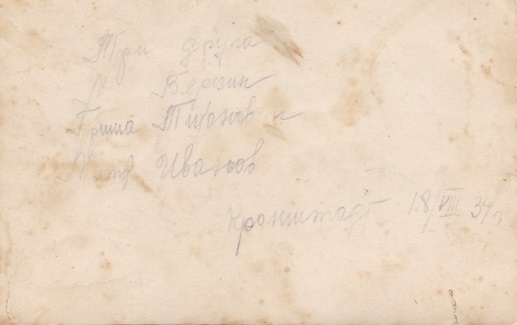 Три друга
Н Березин
Гриша Тиханов и
Иванов
Кронштадт 18/VIII 34 г